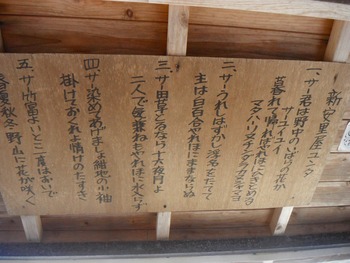 新安里屋ユンタ
一、サー君は野中のいばらの花か
サユイユイ
暮れて帰ればやれほにひきとめる
マタハーリヌチンダラカヌシャマヨ
二、サーうれしはずかし浮名をたてて
主は白百合やれほにままならぬ
三、サー田草とるなら十六夜月よ
二人で気兼ねもやれほに水いらず
四、サー染めてあげましょ紺地の小袖
掛けておくれよ情けのたすき
五、サー竹富よいとこ一度はおいで
春夏秋冬野山に花が咲く